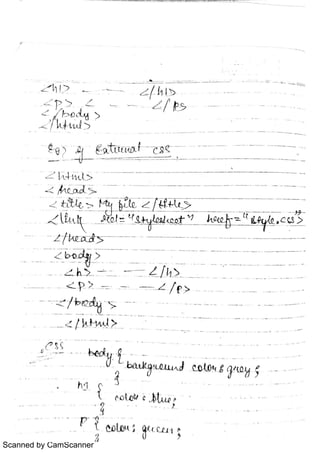 <h1> - - - </h1>
<p> < - - - </ps
</body>
</html>
Eg) of External css
<html>
<head>
<title> My file </title>
<link rel="stylesheet" href="style.css">
</head>
<body>
<h> - - - </h>
<p> - - - </p>
</body>
</html>
css
body {
background color: grey;
}
h1 {
color: blue;
}
p {
color: green;
}
Scanned by CamScanner